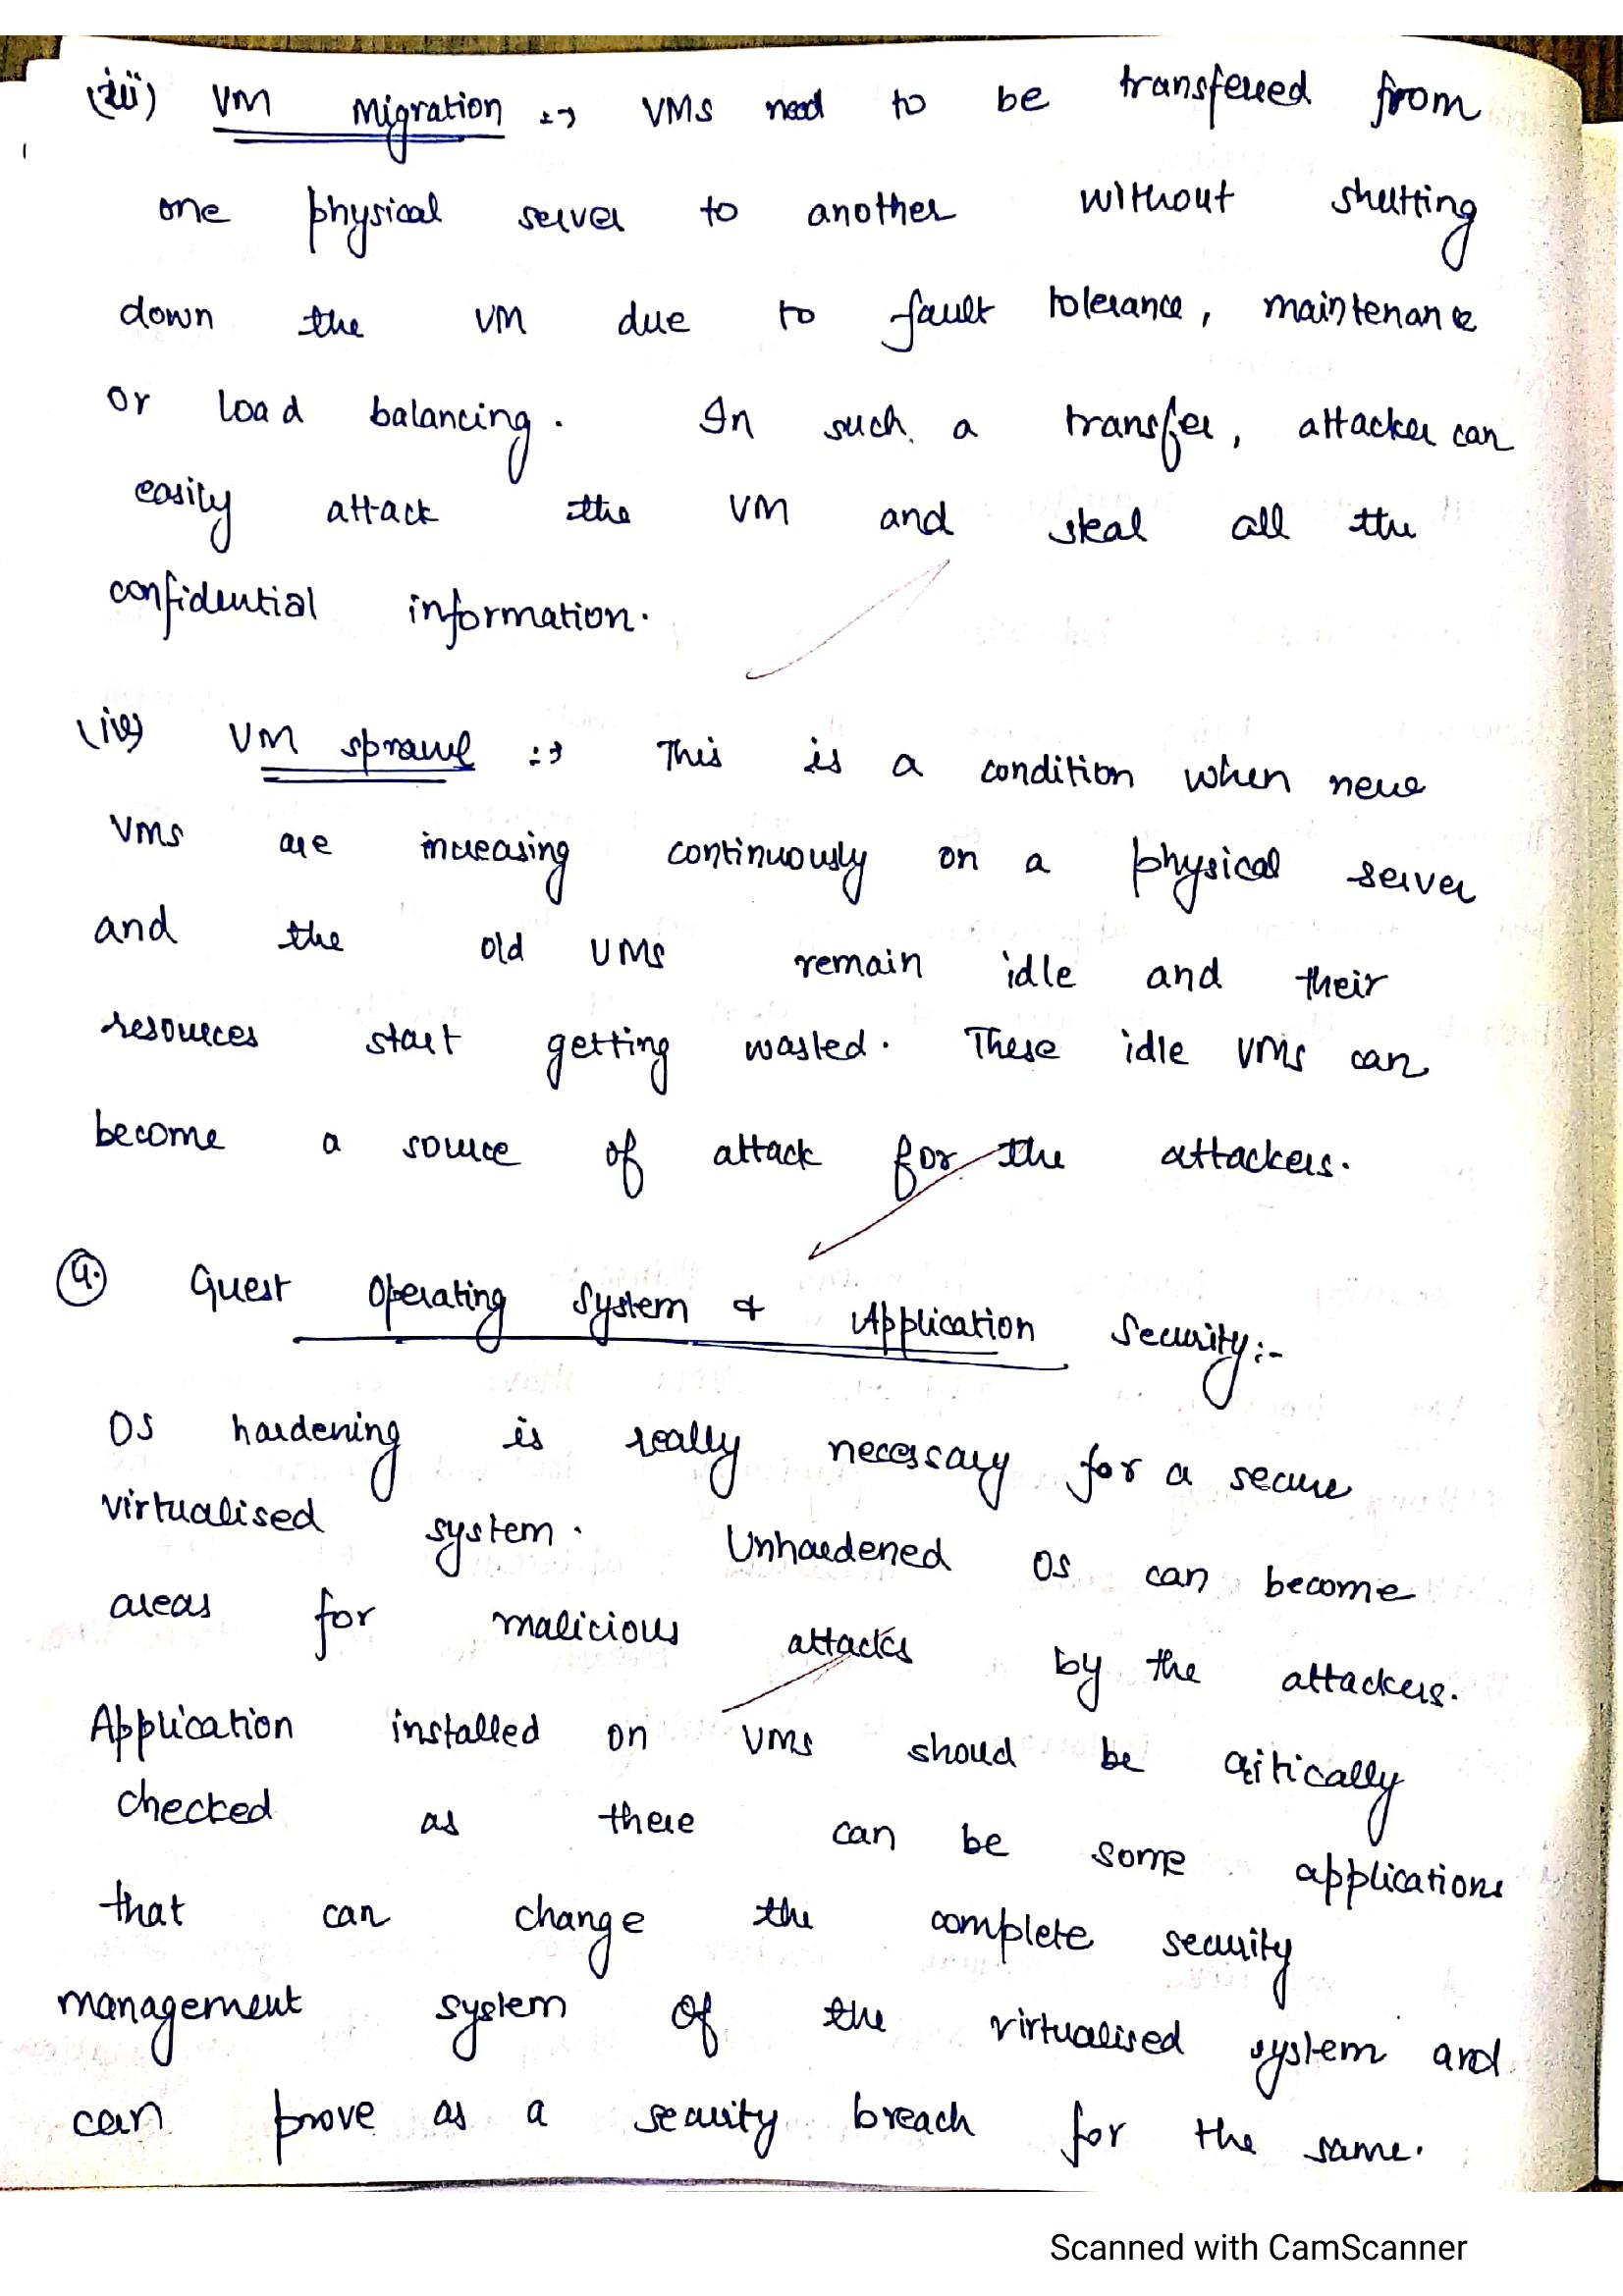 (iii) VM Migration :→ VMs need to be transferred from
one physical server to another without shutting
down the VM due to fault tolerance, maintenance
or load balancing. In such a transfer, attacker can
easily attack the VM and steal all the
confidential information.
(iv) VM sprawl :→ This is a condition when new
VMs are increasing continuously on a physical server
and the old VMs remain idle and their
resources start getting wasted. These idle VMs can
become a source of attack for the attackers.
4. Guest Operating System & Application Security:-
OS hardening is really necessary for a secure
virtualised system. Unhardened OS can become
areas for malicious attacks by the attackers.
Application installed on VMs shoud be critically
checked as there can be some applications
that can change the complete security
management system of the virtualised system and
can prove as a security breach for the same.
Scanned with CamScanner